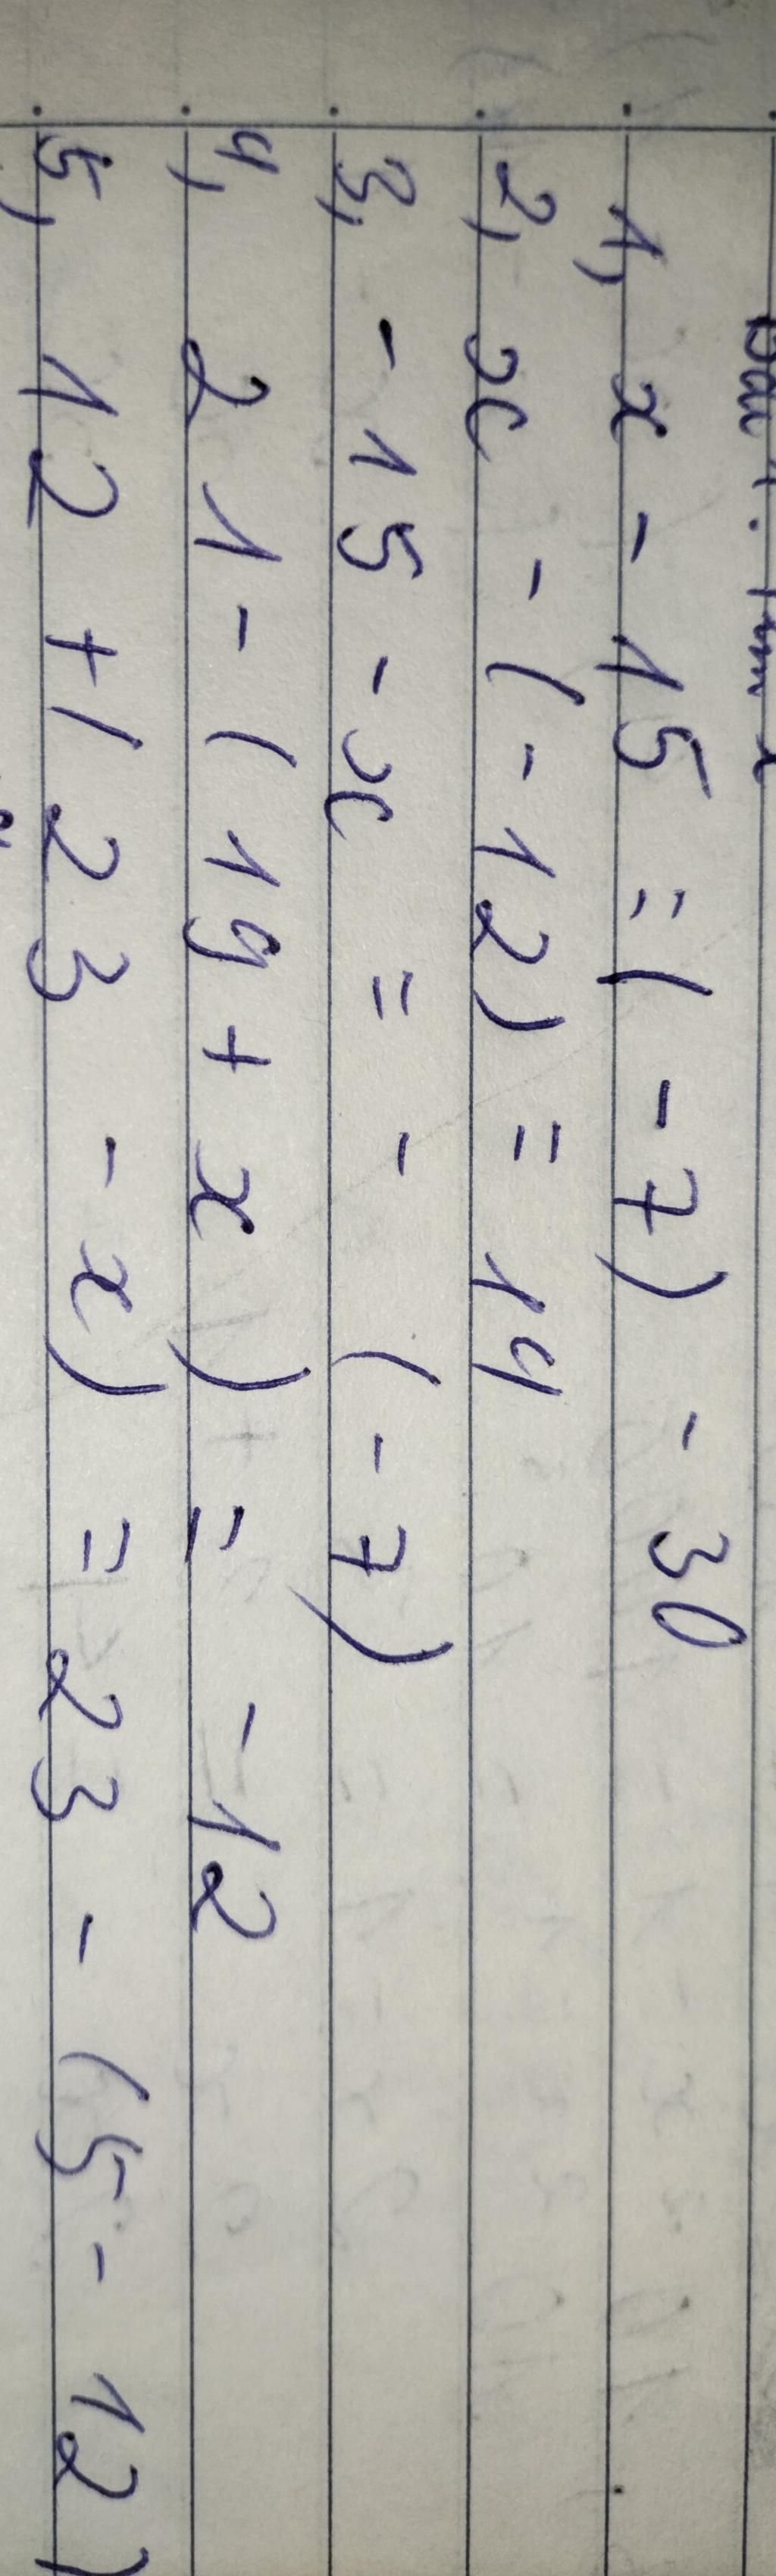 1, x - 15 = (-7) - 30
2, x - (-12) = 14
3, - 15 - x = - (-7)
4, 21 - (19 + x) = - 12
5, 12 + (23 - x) = 23 - (5 - 12)